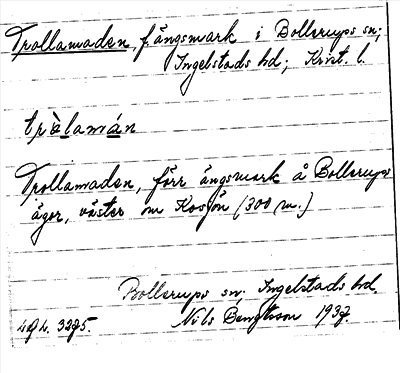 Trollamaden, f. ängsmark i Bollerups sn;
Ingelstads hd; Krist. l.
tròlamán
Trollamaden, förr ängsmark å Bollerups
ägor, väster om Kosjön (300 m.)
Bollerups sn; Ingelstads hd.
Nils Bengtsson 1937.